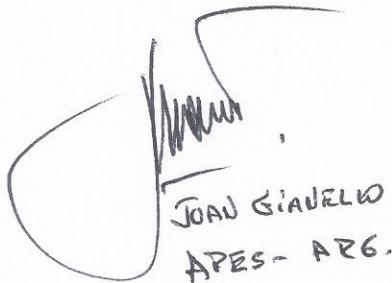 JOAN GIANELLO
APES- ARG.